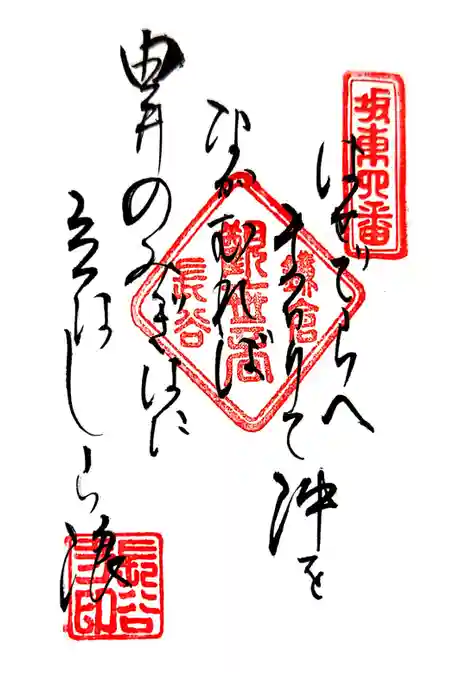 坂東四番
はせでらへ
まゐりて沖を
ながむれば
由井のみぎはに
立はしら浪
鎌倉
観世音
長谷
長谷
寺印